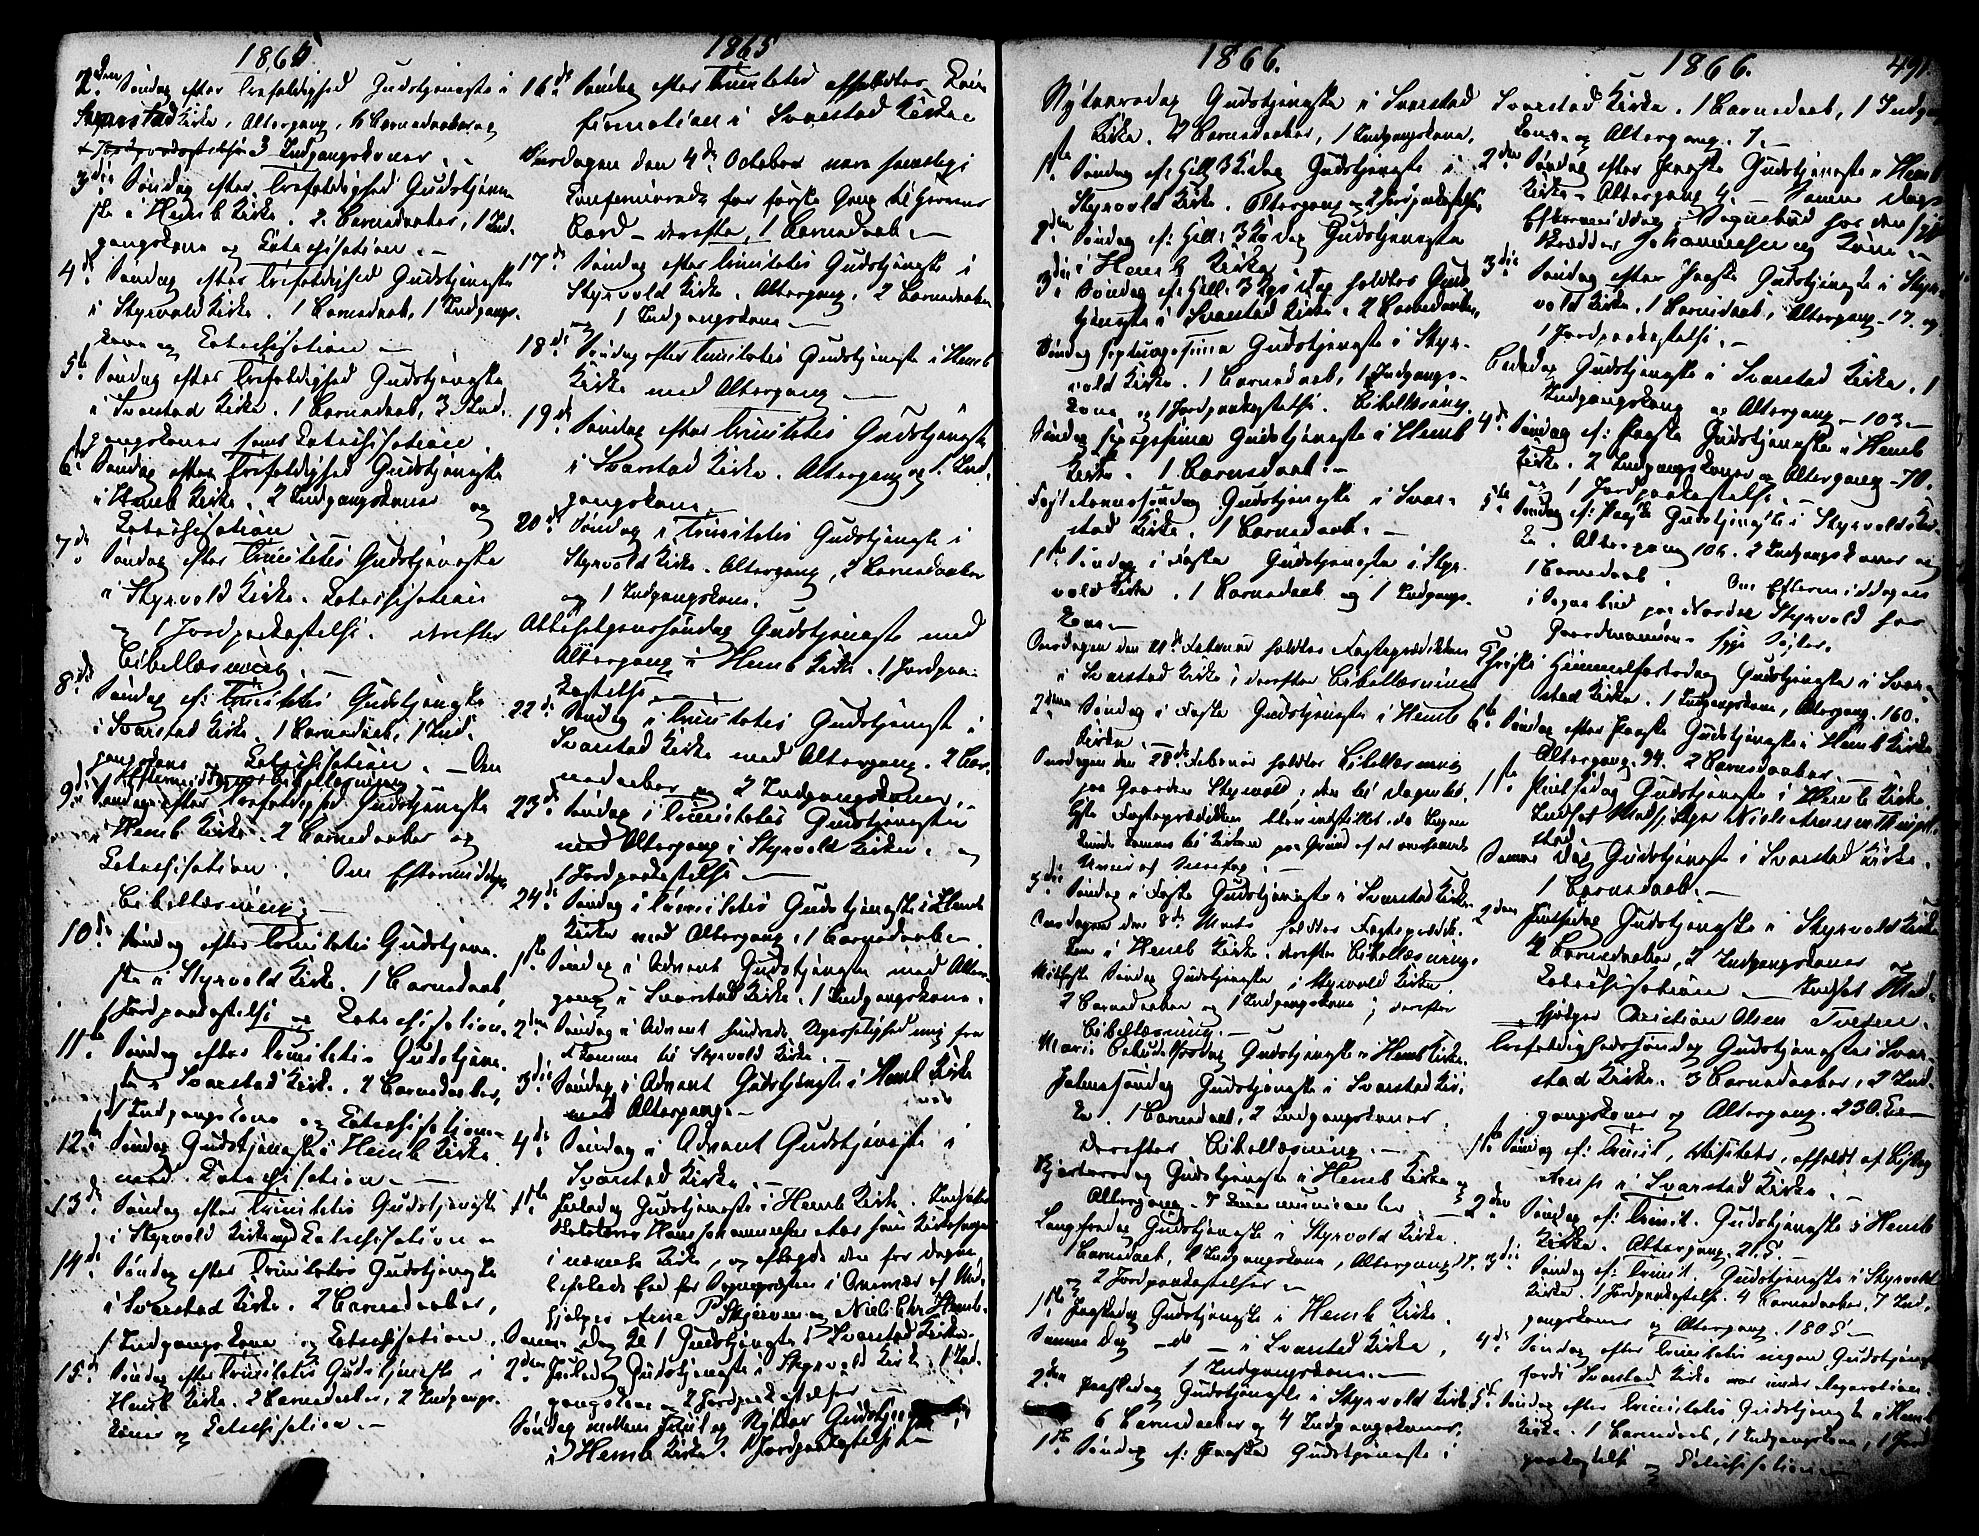 1865.
2den Søndag efter Trefoldighed Gudstjeneste i
Svarstad Kirke, Altergang, Barnedaaber og
3 Indgangskoner.
3die Søndag efter Trefoldighed Gudstjene-
ste i Hemb Kirke. 2 Barnedaaber, 1 Ind-
gangskone og Catechisation.-
4de Søndag efter Trefoldighed Gudstjeneste
i Styrvold Kirke. 1 Barnedaab, 1 Indgangs-
kone og Catechisation -
5te Søndag efter Trefoldighed Gudstjeneste
i Svarstad Kirke. 1 Barnedaab, 3 Ind-
gangskoner samt Catechisation.
6te Søndag efter Trefoldighed Gudstjeneste
i Hemb Kirke. 2 Indgangskoner og
Catechisation
7de Søndag efter Trinitatis Gudstjeneste
i Styrvold Kirke. Catechisation
og 1 Jordpaakastelse. derefter
Bibellæsning. -
8de Søndag ef: Trinitatis Gudstjeneste
i Svarstad Kirke. 1 Barnedaab, 1 Ind-
gangskone og Catechisation. - Om
Eftermiddagen Bibellæsning
9de Søndag efter Trefoldighed Gudstjeneste
i Hemb Kirke. 2 Barnedaaber og
Catechisation. Om Eftermiddagen
Bibellæsning. -
10de Søndag efter Trinitatis Gudstjene-
ste i Styrvold Kirke. 1 Barnedaab,
1 Jordpaakastelse og Catechisation.
11te Søndag efter Trinitatis Gudstjene-
ste i Svarstad Kirke. 2 Barnedaaber,
1 Indgangskone og Catechisation -
12te Søndag Gudstjeneste i Hemb Kirke
med Catechisation. -
13de Søndag efter Trinitatis Gudstjeneste
i Styrvold Kirke med Catechisation -
14de Søndag efter Trinitatis Gudstjeneste
i Svarstad Kirke. 2 Barnedaaber,
1 Indgangskone og Catechisation.
15de Søndag efter Trinitatis Gudstjeneste i
Hemb Kirke. 2 Barnedaaber, 2 Indgangs-
koner og Catechisation. -
1865
16de Søndag efter Trinitatis afholdtes Con-
firmation i Svarstad Kirke.
Onsdagen den 4de October vare samtlige
Confirmerede for første Gang til Herrens
Bord - derefter 1 Barnedaab. -
17de Søndag efter Trinitatis Gudstjeneste i
Styrvold Kirke. Altergang. 2 Barnedaaber
og 1 Indgangskone -
18de Søndag efter Trinitatis Gudstjeneste i Hemb
Kirke med Altergang -
19de Søndag efter Trinitatis Gudstjeneste
i Svarstad Kirke. Altergang og 1 Ind-
gangskone
20de Søndag i Trinitatis Gudstjeneste i
Styrvold Kirke. Altergang, 2 Barnedaaber
og 1 Indgangskone.
Allehelgenssøndag Gudstjeneste med
Altergang i Hemb Kirke. 1 Jordpaa-
kastelse. -
22de Søndag i Trinitatis Gudstjeneste i
Svarstad Kirke med Altergang. 2 Bar-
nedaaber og 2 Indgangskoner. -
23de Søndag i Trinitatis Gudstjeneste
med Altergang i Styrvold Kirke. og
1 Jordpaakastelse -
24de Søndag i Trinitatis Gudstjeneste i Hemb
Kirke med Altergang, 1 Barnedaab -.
1ste Søndag i Advent Gudstjeneste med Alter-
gang i Svarstad Kirke. 1 Indgangskone.
2den Søndag i Advent hindrede Upasselighed mig fra
at komme til Styrvold Kirke. -
3die Søndag i Advent Gudstjeneste i Hemb Kirke
med Altergang. -
4de Søndag i Advent Gudstjeneste i
Svarstad Kirke. -
1ste Juledag Gudstjeneste i Hemb Kirke. Indsatte
Hans Johannesen som Kirkesanger
i nævnte Kirke, og aflagde den for
Eed for Sognepræsten i Overvær af Med-
hjelper Arne P Skjerven og Niels Chr. Hemb.
Samme Dag Kl 1 Gudstjeneste i Svarstad Kirke.
2den Juledag Gudstjeneste i Styrvold Kirke, 1 Ind-
gangskone og 2 Jordpaakastelser -
Søndag mellem Juul og Nytaar Gudstjeneste
i Hemb Kirke. Jordpaakastelse -
1866.
Nytaarsdag Gudstjeneste i Svarstad
Kirke. 2 Barnedaaber, 1 Indgangskone.
1ste Søndag ef: Hell. 3 K.dag Gudstjeneste i
Styrvold Kirke. Altergang og 2 Jordpaakastelser.
2den Søndag ef: Hell. 3 K.dag Gudstjeneste
i Hemb Kirke.
3die Søndag ef: Hell. 3 Kgs dag holdtes Guds-
tjeneste i Svarstad Kirke. 2 Barnedaaber.
Søndag Septuagesima Gudstjeneste i Styr-
vold Kirke. 1 Barnedaab, 1 Indgangs-
kone og 1 Jordpaakastelse. Bibellæsning.
Søndag Sexagesima Gudstjeneste i Hemb
Kirke. 1 Barnedaab. -
Fastelavnssøndag Gudstjeneste i Svar-
stad Kirke. 1 Barnedaab. -
1ste Søndag i Faste Gudstjeneste i Styr-
vold Kirke. 1 Barnedaab og 1 Indgangs-
kone. -
Onsdagen den 21de Februar holdtes Fasteprædiken
i Svarstad Kirke; derefter Bibellæsning
2den Søndag i Faste Gudstjeneste i Hemb
Kirke. -
Onsdagen den 28de Februar holdtes Bibellæsning
paa Gaarden Styrvold; den til Dagen be-
stemte Fasteprædiken blev indstillet, da Ingen
kunde komme til Kirken paa Grund af et overhændigt
Uveir af Snefog. -
3die Søndag i Faste Gudstjeneste i Svarstad Kirke
Torsdagen den 8de Marts holdtes Fasteprædi-
ken i Hemb Kirke. derefter Bibellæsning.
Midfaste Søndag Gudstjeneste i Styrvold Kirke.
2 Barnedaaber og 1 Indgangskone; derefter
Bibellæsning. -
Mariæ Bebudelsesdag Gudstjeneste i Hemb Kirke.
Palmesøndag Gudstjeneste i Svarstad Kir-
ke. 1 Barnedaab, 2 Indgangskoner.
Derefter Bibellæsning. -
Skjertorsdag Gudstjeneste i Hemb Kirke og
Altergang. Communicanter. -
Langfredag Gudstjeneste i Styrvold Kirke.
1 Barnedaab, Indgangskone, Altergang
og 2 Jordpaakastelser -
1ste Paaskedag Gudstjeneste i Hemb Kirke.
Samme Dag - do - i Svarstad Kirke,
1 Indgangskone. -
2den Paaskedag Gudstjeneste i Styrvold Kirke
6 Barnedaaber og 4 Indgangskoner.
1ste Søndag ef: Paaske Gudstjeneste i
1866.
491
Svarstad Kirke. 1 Barnedaab, 1 Indgangs-
kone og Altergang. 7. -
2den Søndag efter Paaske Gudstjeneste i Hemb
Kirke - Altergang 4. - Samme Dags
Eftermiddag i Sognebud hos den syge
Skrædder Johannesen og Kone. -
3die Søndag efter Paaske Gudstjeneste i Styr-
vold Kirke. 1 Barnedaab, Altergang - 17. og
1 Jordpaakastelse. -
Bededag Gudstjeneste i Svarstad Kirke. 1
Indgangskone og Altergang - 103 -
4de Søndag ef: Paaske Gudstjeneste i Hemb
Kirke. 2 Indgangskoner og Altergang - 70.
og 1 Jordpaakastelse. -
5te Søndag ef: Paaske Gudstjeneste i Styrvold Kir-
ke. Altergang 106. 2 Indgangskoner og
1 Barnedaab. Om Eftermiddagen
i Sognebud paa Nordre Styrvold hos
Gaardmandens syge Søster.
Christi Himmelfartsdag Gudstjeneste i Svar-
stad Kirke. 1 Indgangskone, Altergang. 160.
6te Søndag efter Paaske Gudstjeneste i Hemb Kirke.
Altergang. 94. 2 Barnedaaber. -
1ste Pintsedag Gudstjeneste i Hemb Kirke.
Indsat Medhjelper Niels
Samme Dag Gudstjeneste i Svarstad Kirke.
1 Barnedaab. -
2den Pintsedag Gudstjeneste i Styrvold Kirke
4 Barnedaaber, 2 Indgangskoner og
Catechisation. - Indsat Med-
hjelper Christian Olsen Tveten.
Trefoldighedssøndag Gudstjeneste i Svar-
stad Kirke. 3 Barnedaaber, 2 Ind-
gangskoner og Altergang. 230.
1ste Søndag ef: Trinit, Visitats, afholdt af Biskop
Arup i Svarstad Kirke. -
2den Søndag ef: Trinit. Gudstjeneste i Hemb
Kirke. Altergang. -
3die Søndag ef: Trinit. Gudstjeneste i Styrvold
Kirke. 1 Jordpaakastelse. 4 Barnedaaber, 7 Ind-
gangskoner og Altergang. 180
4de Søndag efter Trinitatis ingen Gudstjeneste
fordi Svarstad Kirke var under Reparation.
5te Søndag efter Trinitatis Gudstjeneste i Hemb
Kirke. 1 Barnedaab, 1 Indgangskone, 1 Jord-
paakastelse og Catechisation -